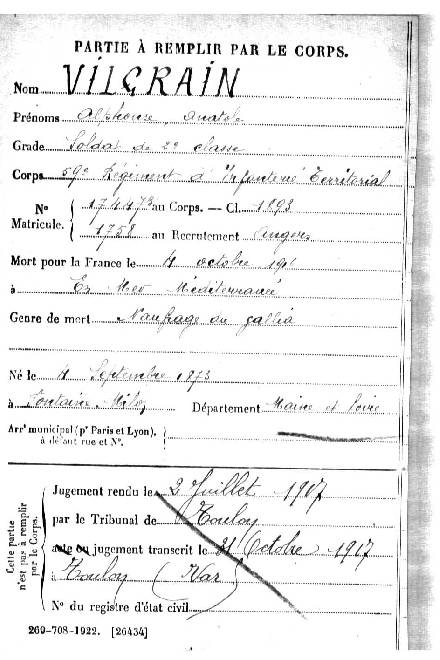 PARTIE À REMPLIR PAR LE CORPS.
Nom VILGRAIN
Prénoms Alphonse, Anatole
Grade Soldat de 2e classe
Corps 59e Régiment d'Infanterie Territorial
No Matricule. 17447 au Corps. — Cl. 1893
1758 au Recrutement Angers
Mort pour la France le 4 octobre 191
à En Mer Méditerranée
Genre de mort Naufrage du Gallia
Né le 4 Septembre 1873
à Fontaine-Milon Département Maine et Loire
Arrt municipal (pr Paris et Lyon),
à défaut rue et No.
Cette partie n'est pas à remplir par le Corps.
Jugement rendu le 2 Juillet 1917
par le Tribunal de Toulon
acte ou jugement transcrit le 21 Octobre 1917
à Toulon (Var)
No du registre d'état civil
269-708-1922. [26434]